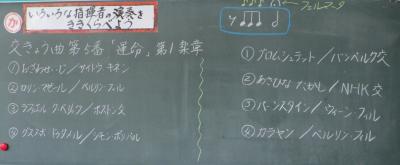 か
いろいろな指揮者の演奏を
ききくらべよう
交きょう曲第5番「運命」第1楽章
①おざわせいじ/サイトウ キネン
②ロリン・マゼール/ベルリン・フィル
③ラファエル・クーベリック/ボストン交
④グスタボ・ドゥダメル/シモン・ボリバル
フェルマータ
①ブロムシュテット/バンベルク交
②あさひな たかし/NHK交
③バーンスタイン/ウィーン・フィル
④カラヤン/ベルリン・フィル